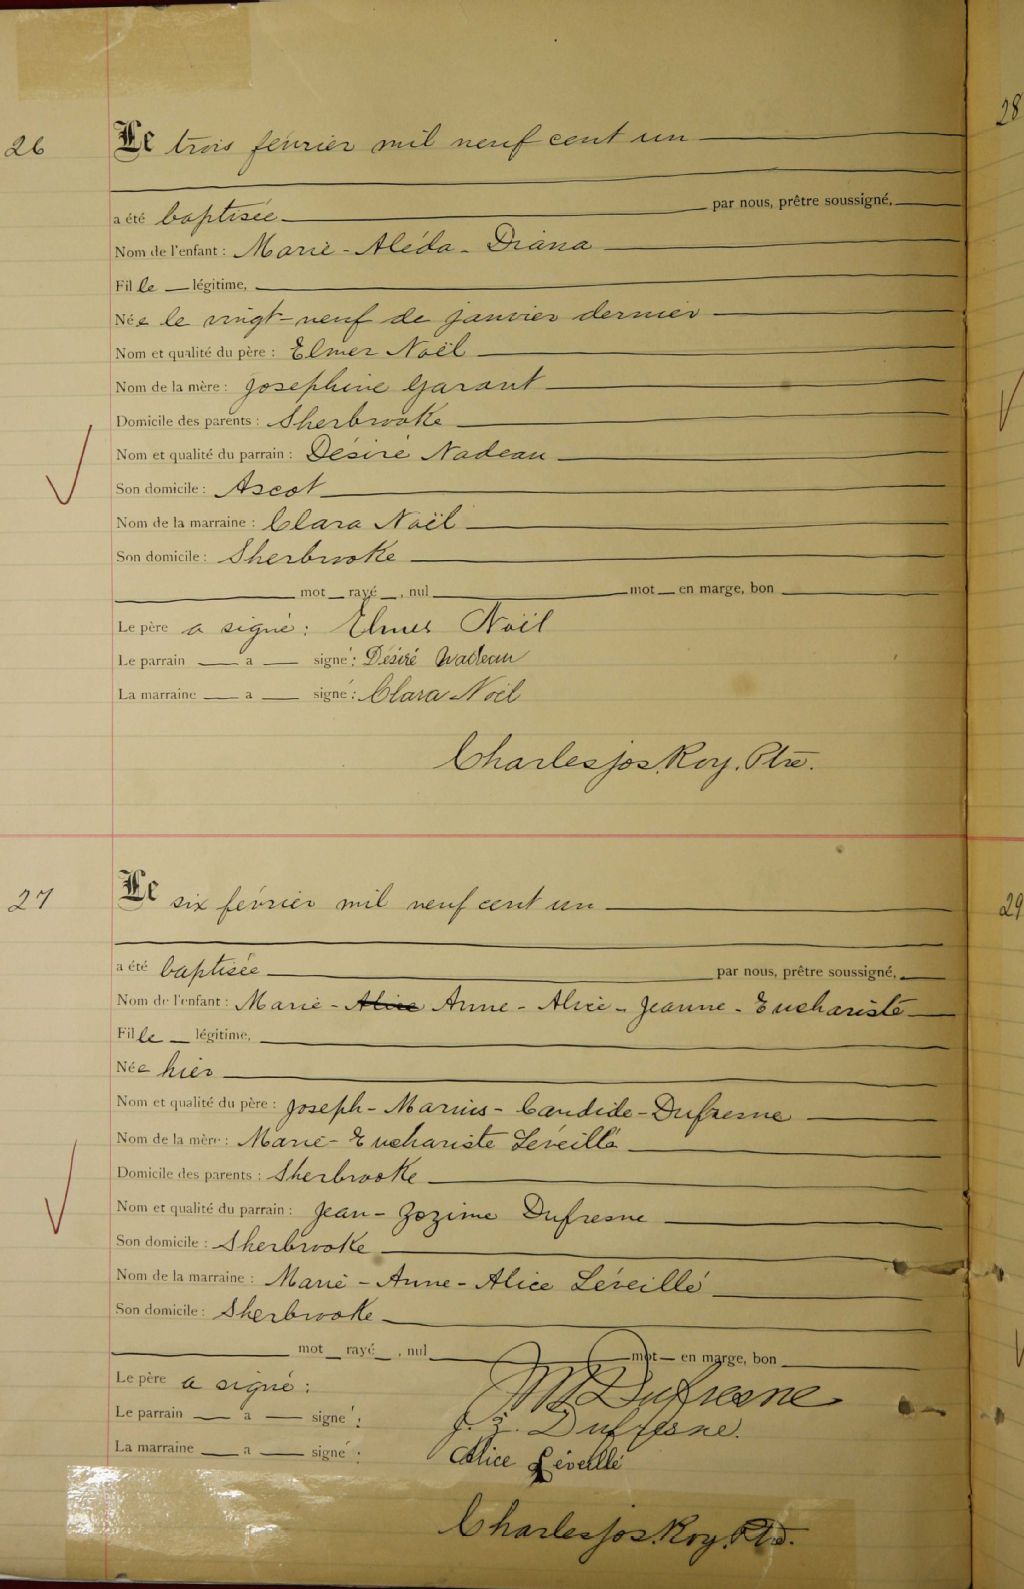 26
Le trois février mil neuf cent un
a été baptisée par nous, prêtre soussigné,
Nom de l'enfant : Marie - Aléda - Diana
Fille légitime,
Née le vingt-neuf de janvier dernier
Nom et qualité du père : Elmer Noël
Nom de la mère : Josephine Garant
Domicile des parents : Sherbrooke
Nom et qualité du parrain : Désiré Nadeau
Son domicile : Ascot
Nom de la marraine : Clara Noël
Son domicile : Sherbrooke
mot rayé , nul mot en marge, bon
Le père a signé : Elmer Noël
Le parrain a signé : Désiré Nadeau
La marraine a signé : Clara Noël
Charles jos. Roy. Ptre.
27
Le six février mil neuf cent un
a été baptisée par nous, prêtre soussigné,
Nom de l'enfant : Marie - Alice Anne - Alice - Jeanne - Euchariste
Fille légitime,
Née hier
Nom et qualité du père : Joseph - Marius - Candide - Dufresne
Nom de la mère : Marie - Euchariste Léveillé
Domicile des parents : Sherbrooke
Nom et qualité du parrain : Jean - Zozime Dufresne
Son domicile : Sherbrooke
Nom de la marraine : Marie - Anne - Alice Léveillé
Son domicile : Sherbrooke
mot rayé , nul mot en marge, bon
Le père a signé : Dufresne
Le parrain a signé : J. Z. Dufresne.
La marraine a signé : Alice Léveillé
Charles jos. Roy. Ptre.
28
29